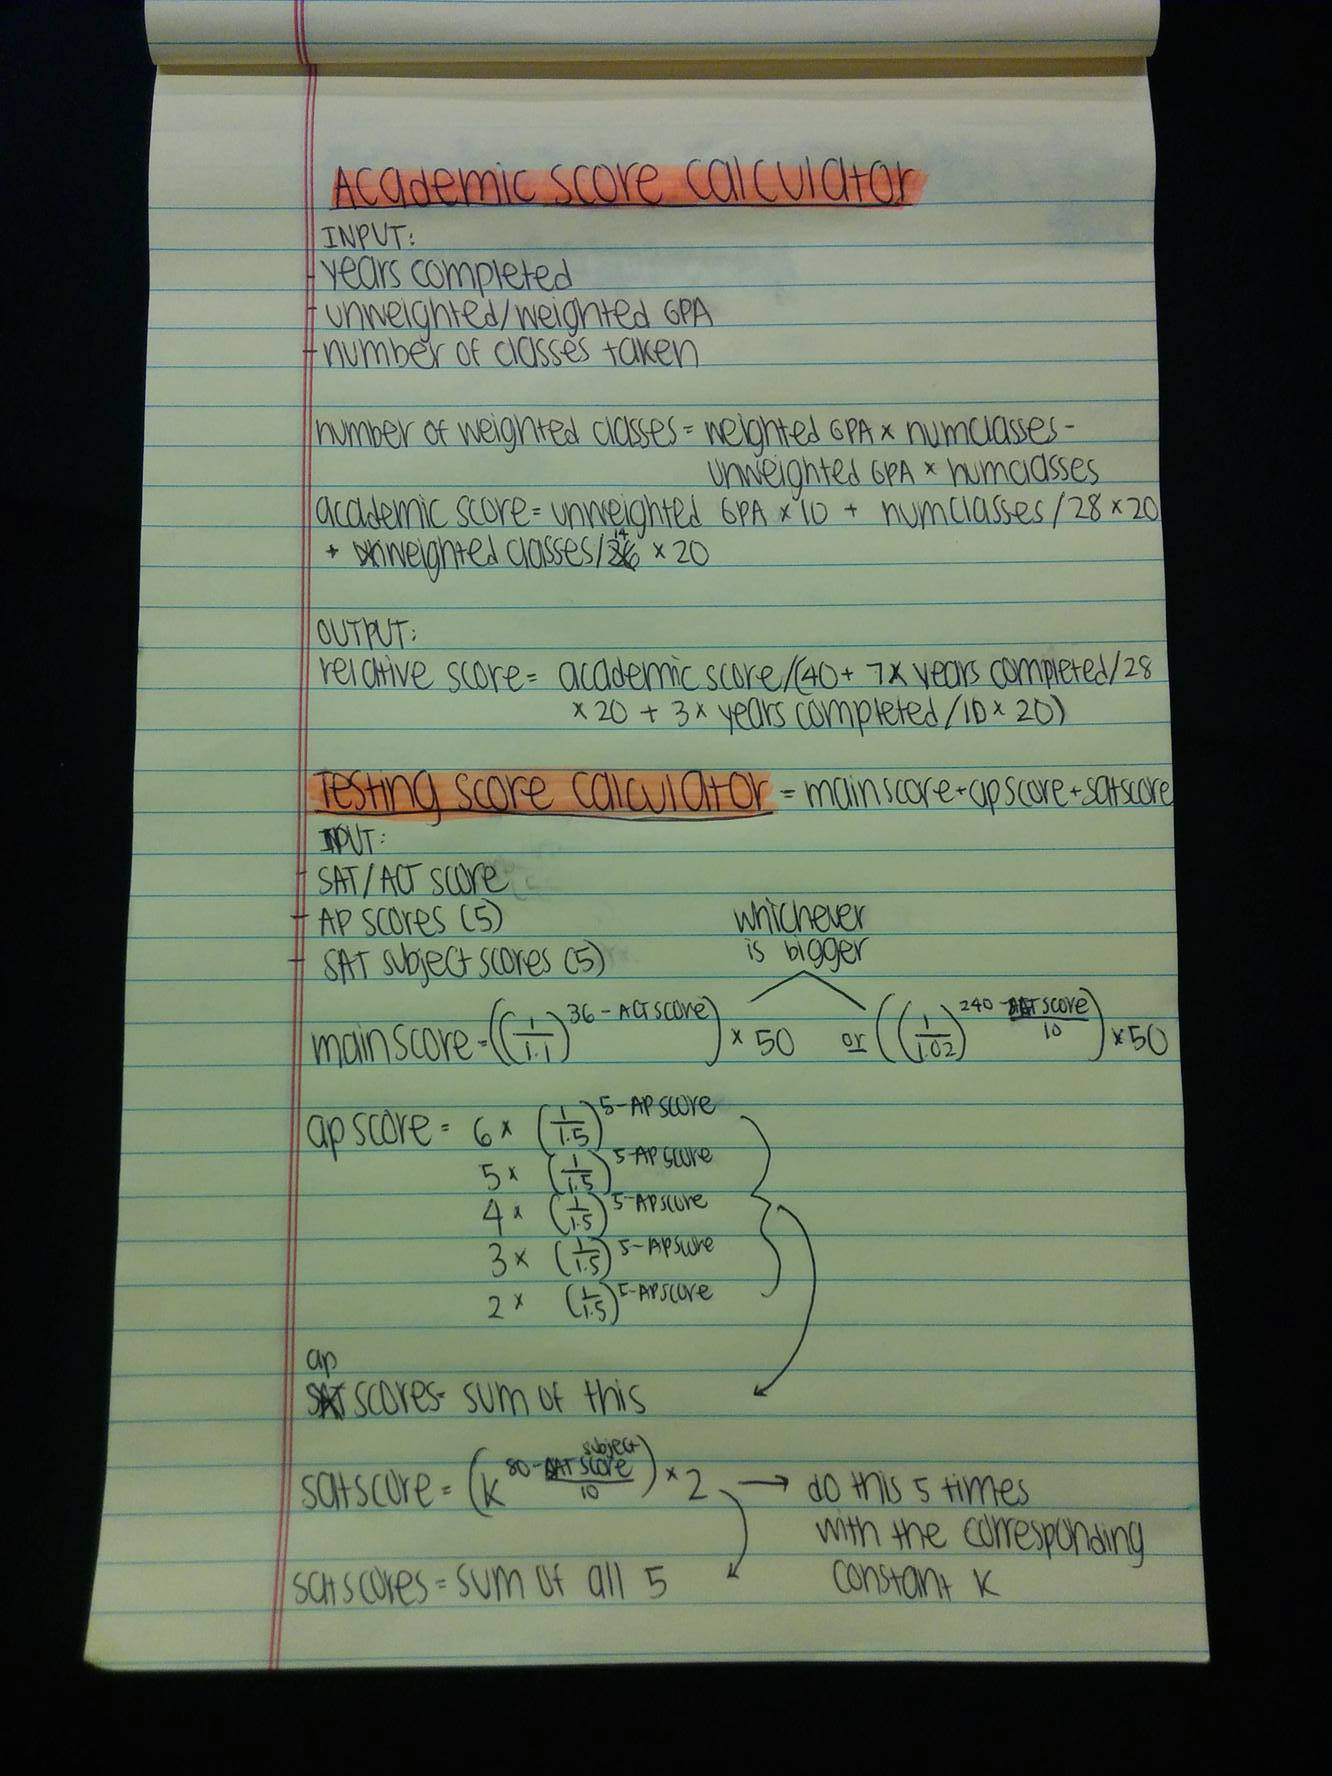 Academic score calculator
INPUT:
- years completed
- unweighted/weighted GPA
- number of classes taken
number of weighted classes = weighted GPA × numclasses -
unweighted GPA × numclasses
academic score = unweighted GPA × 10 + numclasses/28 × 20
+ weighted classes/14 × 20
OUTPUT:
relative score = academic score/(40 + 7 × years completed/28
× 20 + 3 × years completed/10 × 20)
Testing score calculator = mainscore + apscore + satscore
INPUT:
- SAT/ACT score
- AP scores (5)
- SAT subject scores (5)
whichever
is bigger
mainscore = ((1/1.1)^36 - ACT score) × 50 or ((1/1.02)^240 - SAT score/10) × 50
apscore = 6 × (1/1.5)^5-AP score
5 × (1/1.5)^5-AP score
4 × (1/1.5)^5-AP score
3 × (1/1.5)^5-AP score
2 × (1/1.5)^5-AP score
ap
scores = sum of this
satscore = (k^80 - SAT subject score/10) × 2 → do this 5 times
with the corresponding
satscores = sum of all 5 constant k